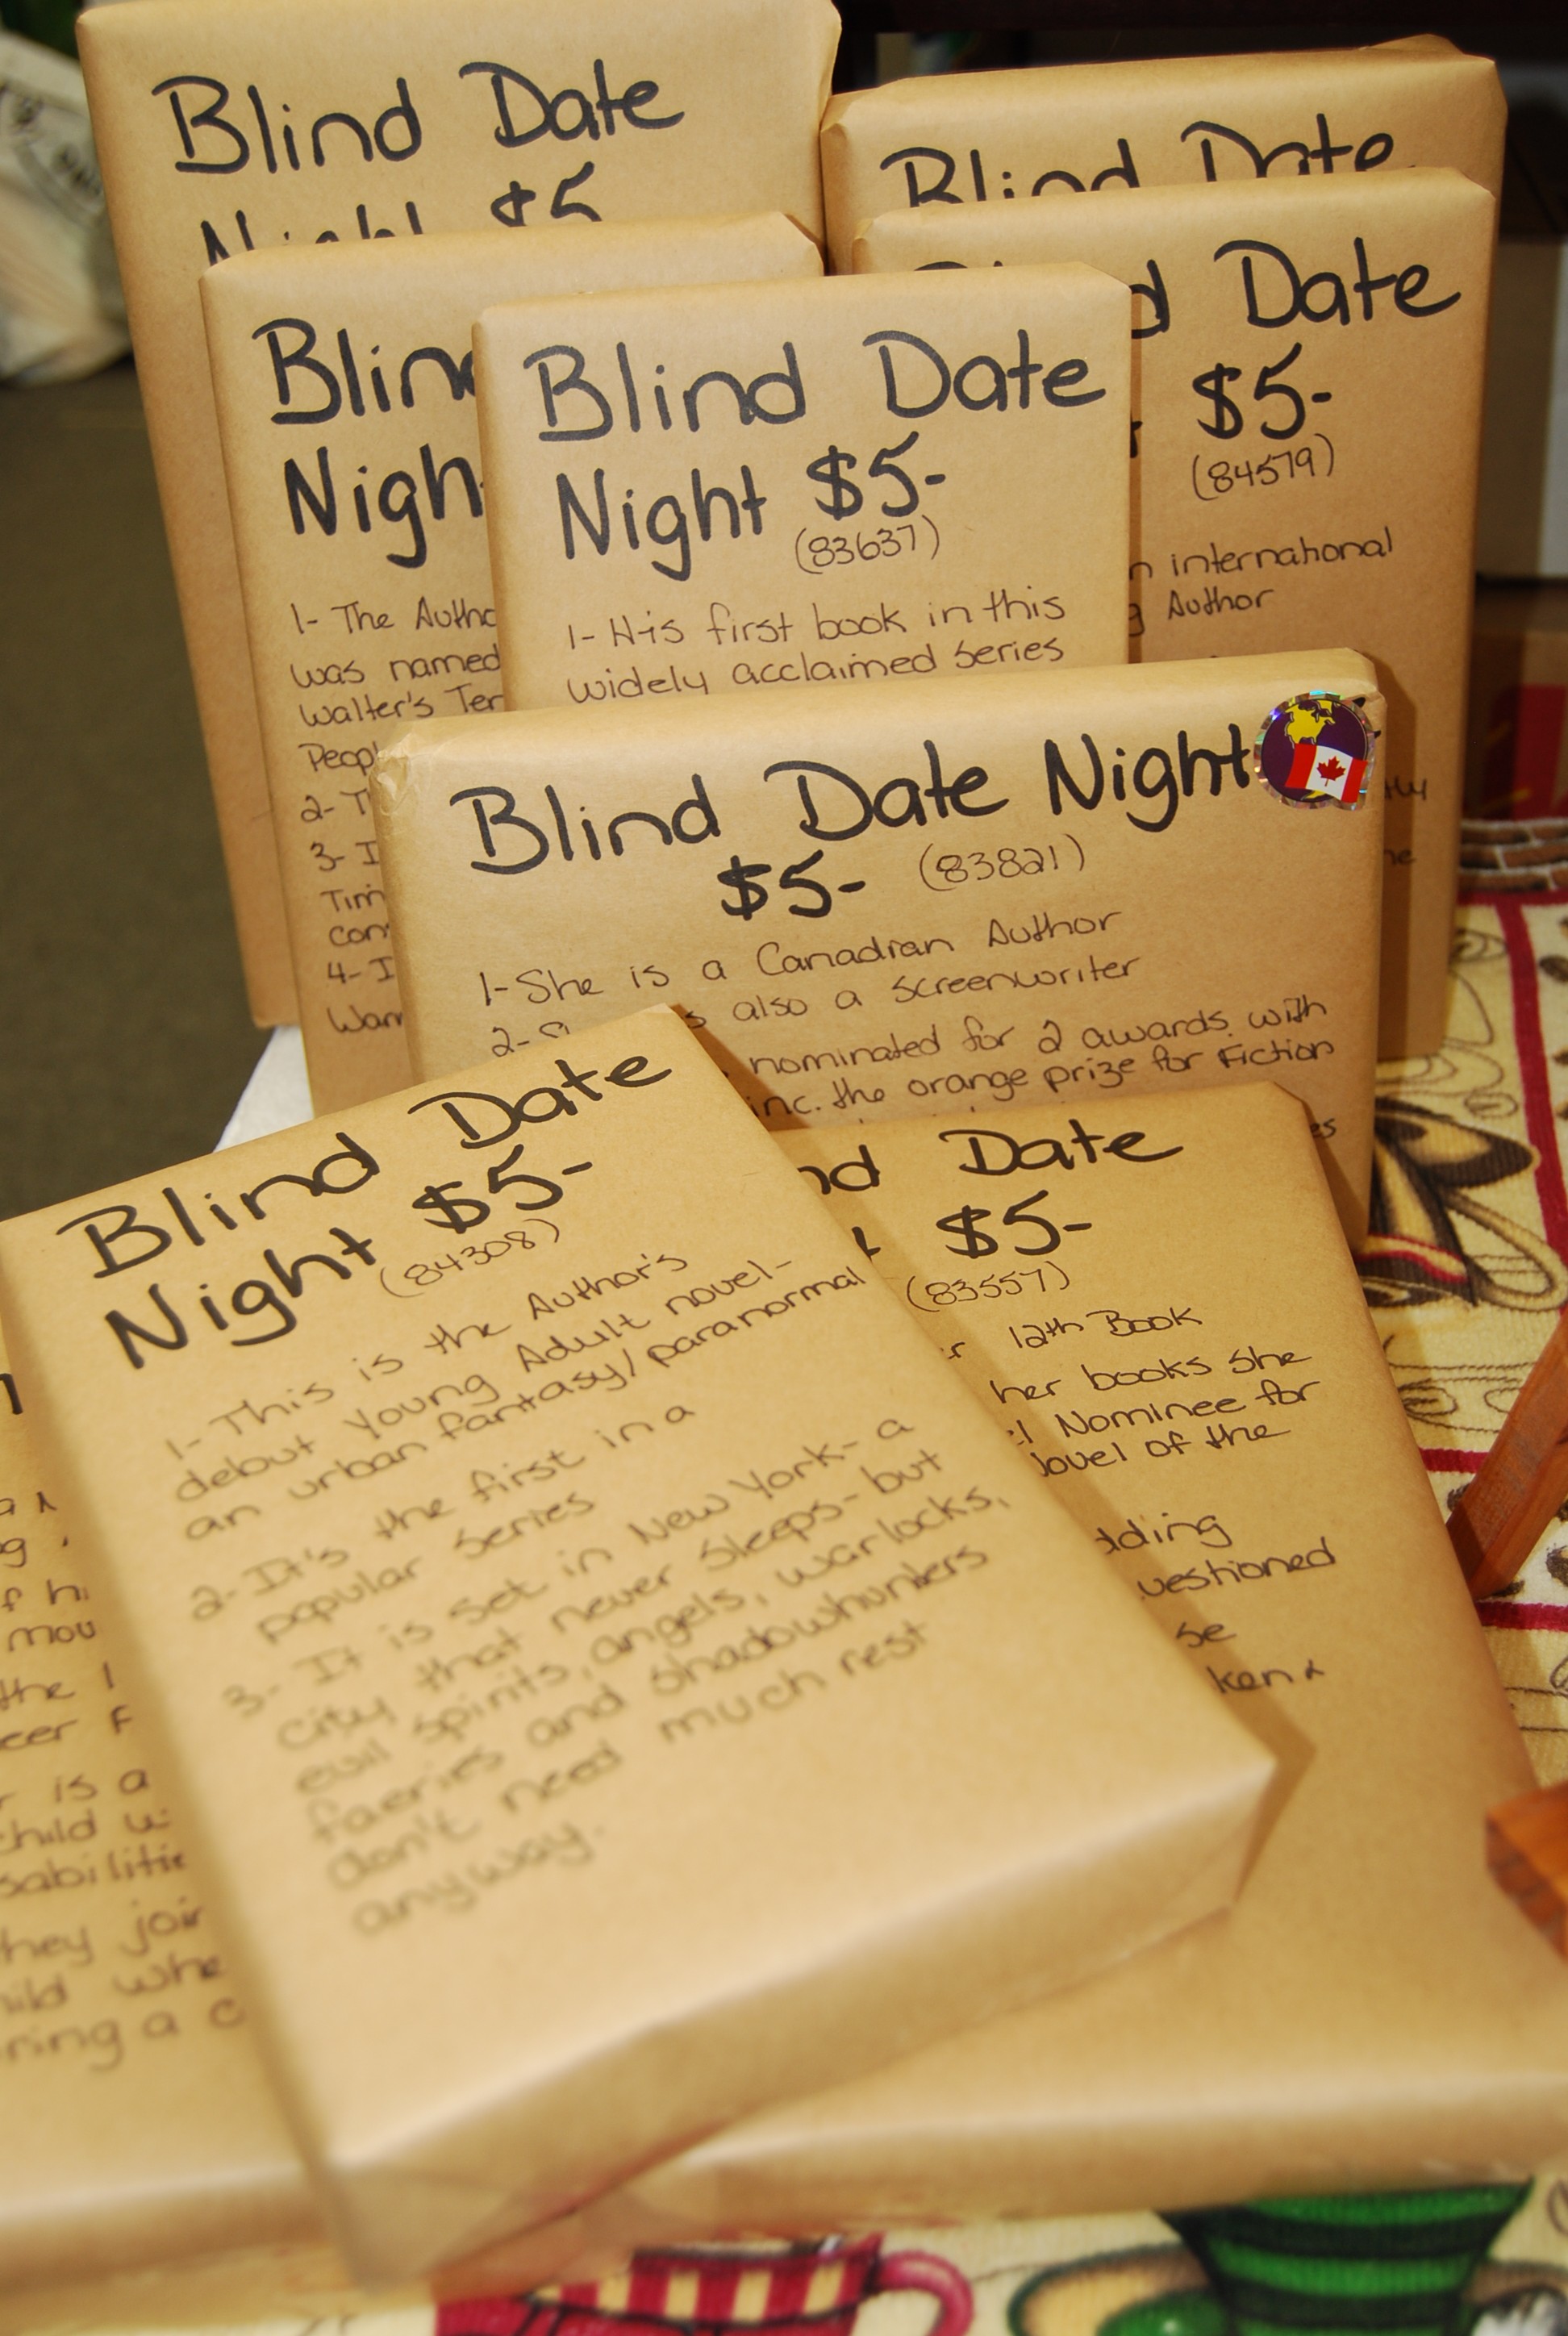 Blind Date
Night $5
Blind Date
Date
$5-
(84579)
international
Author
Night
1- The
was named
Walter's
2-
3- I
4- I
Blind Date
Night $5-
(83637)
1- His first book in this
widely acclaimed series
Blind Date Night
$5- (83821)
1- She is a Canadian Author
2- also a screenwriter
nominated for 2 awards with
inc. the orange prize for Fiction
Blind Date
Night $5-
(84308)
1- This is the Author's
debut Young Adult novel-
an urban fantasy/paranormal
2- It's the first in a
popular series
3- It is set in New York- a
city that never sleeps- but
evil spirits, angels, warlocks,
faeries and shadowhunters
don't need much rest
anyway.
Date
$5-
(83557)
12th Book
her books she
Nominee for
of the
is a
they join